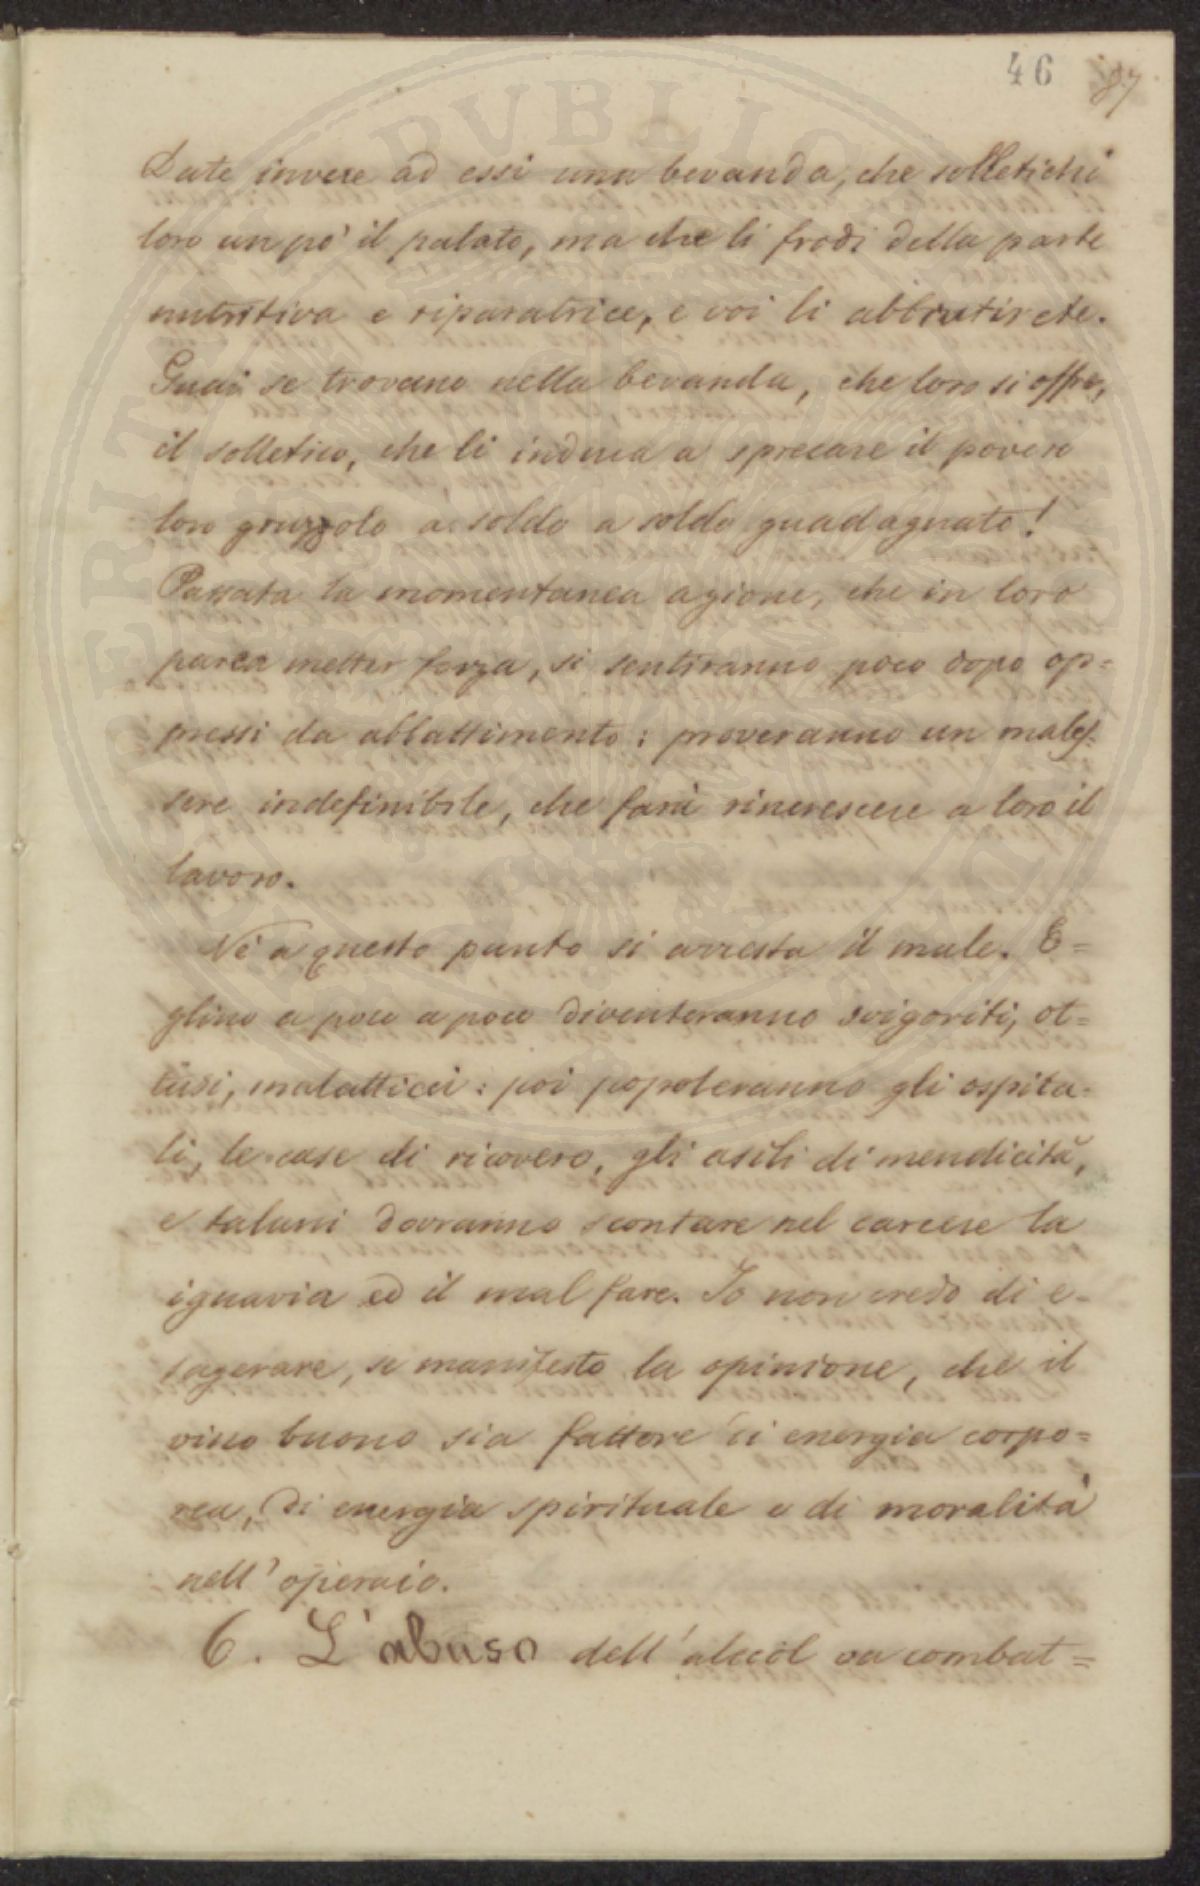 46 87
Date invece ad essi una bevanda, che solletichi
loro un po' il palato, ma che li frodi della parte
nutritiva e riparatrice, e voi li abbrutirete.
Guai se trovano nella bevanda, che loro si offre,
il solletico, che li induca a sprecare il povero
loro gruzzolo a soldo a soldo guadagnato!
Passata la momentanea azione, che in loro
parea metter forza, si sentiranno poco dopo op=
pressi da abbattimento: proveranno un males=
sere indefinibile, che farà rincrescere a loro il
lavoro.
Nè a questo punto si arresta il male. E=
glino a poco a poco diventeranno svigoriti, ot=
tusi, malatticci: poi popoleranno gli ospita-
li, le case di ricovero, gli asili di mendicità,
e taluni dovranno scontare nel carcere la
ignavia ed il mal fare. Io non credo di e-
sagerare, se manifesto la opinione, che il
vino buono sia fattore di energia corpo=
rea, di energia spirituale e di moralità
nell'operaio.
6. L'abuso dell'alcòl va combat=